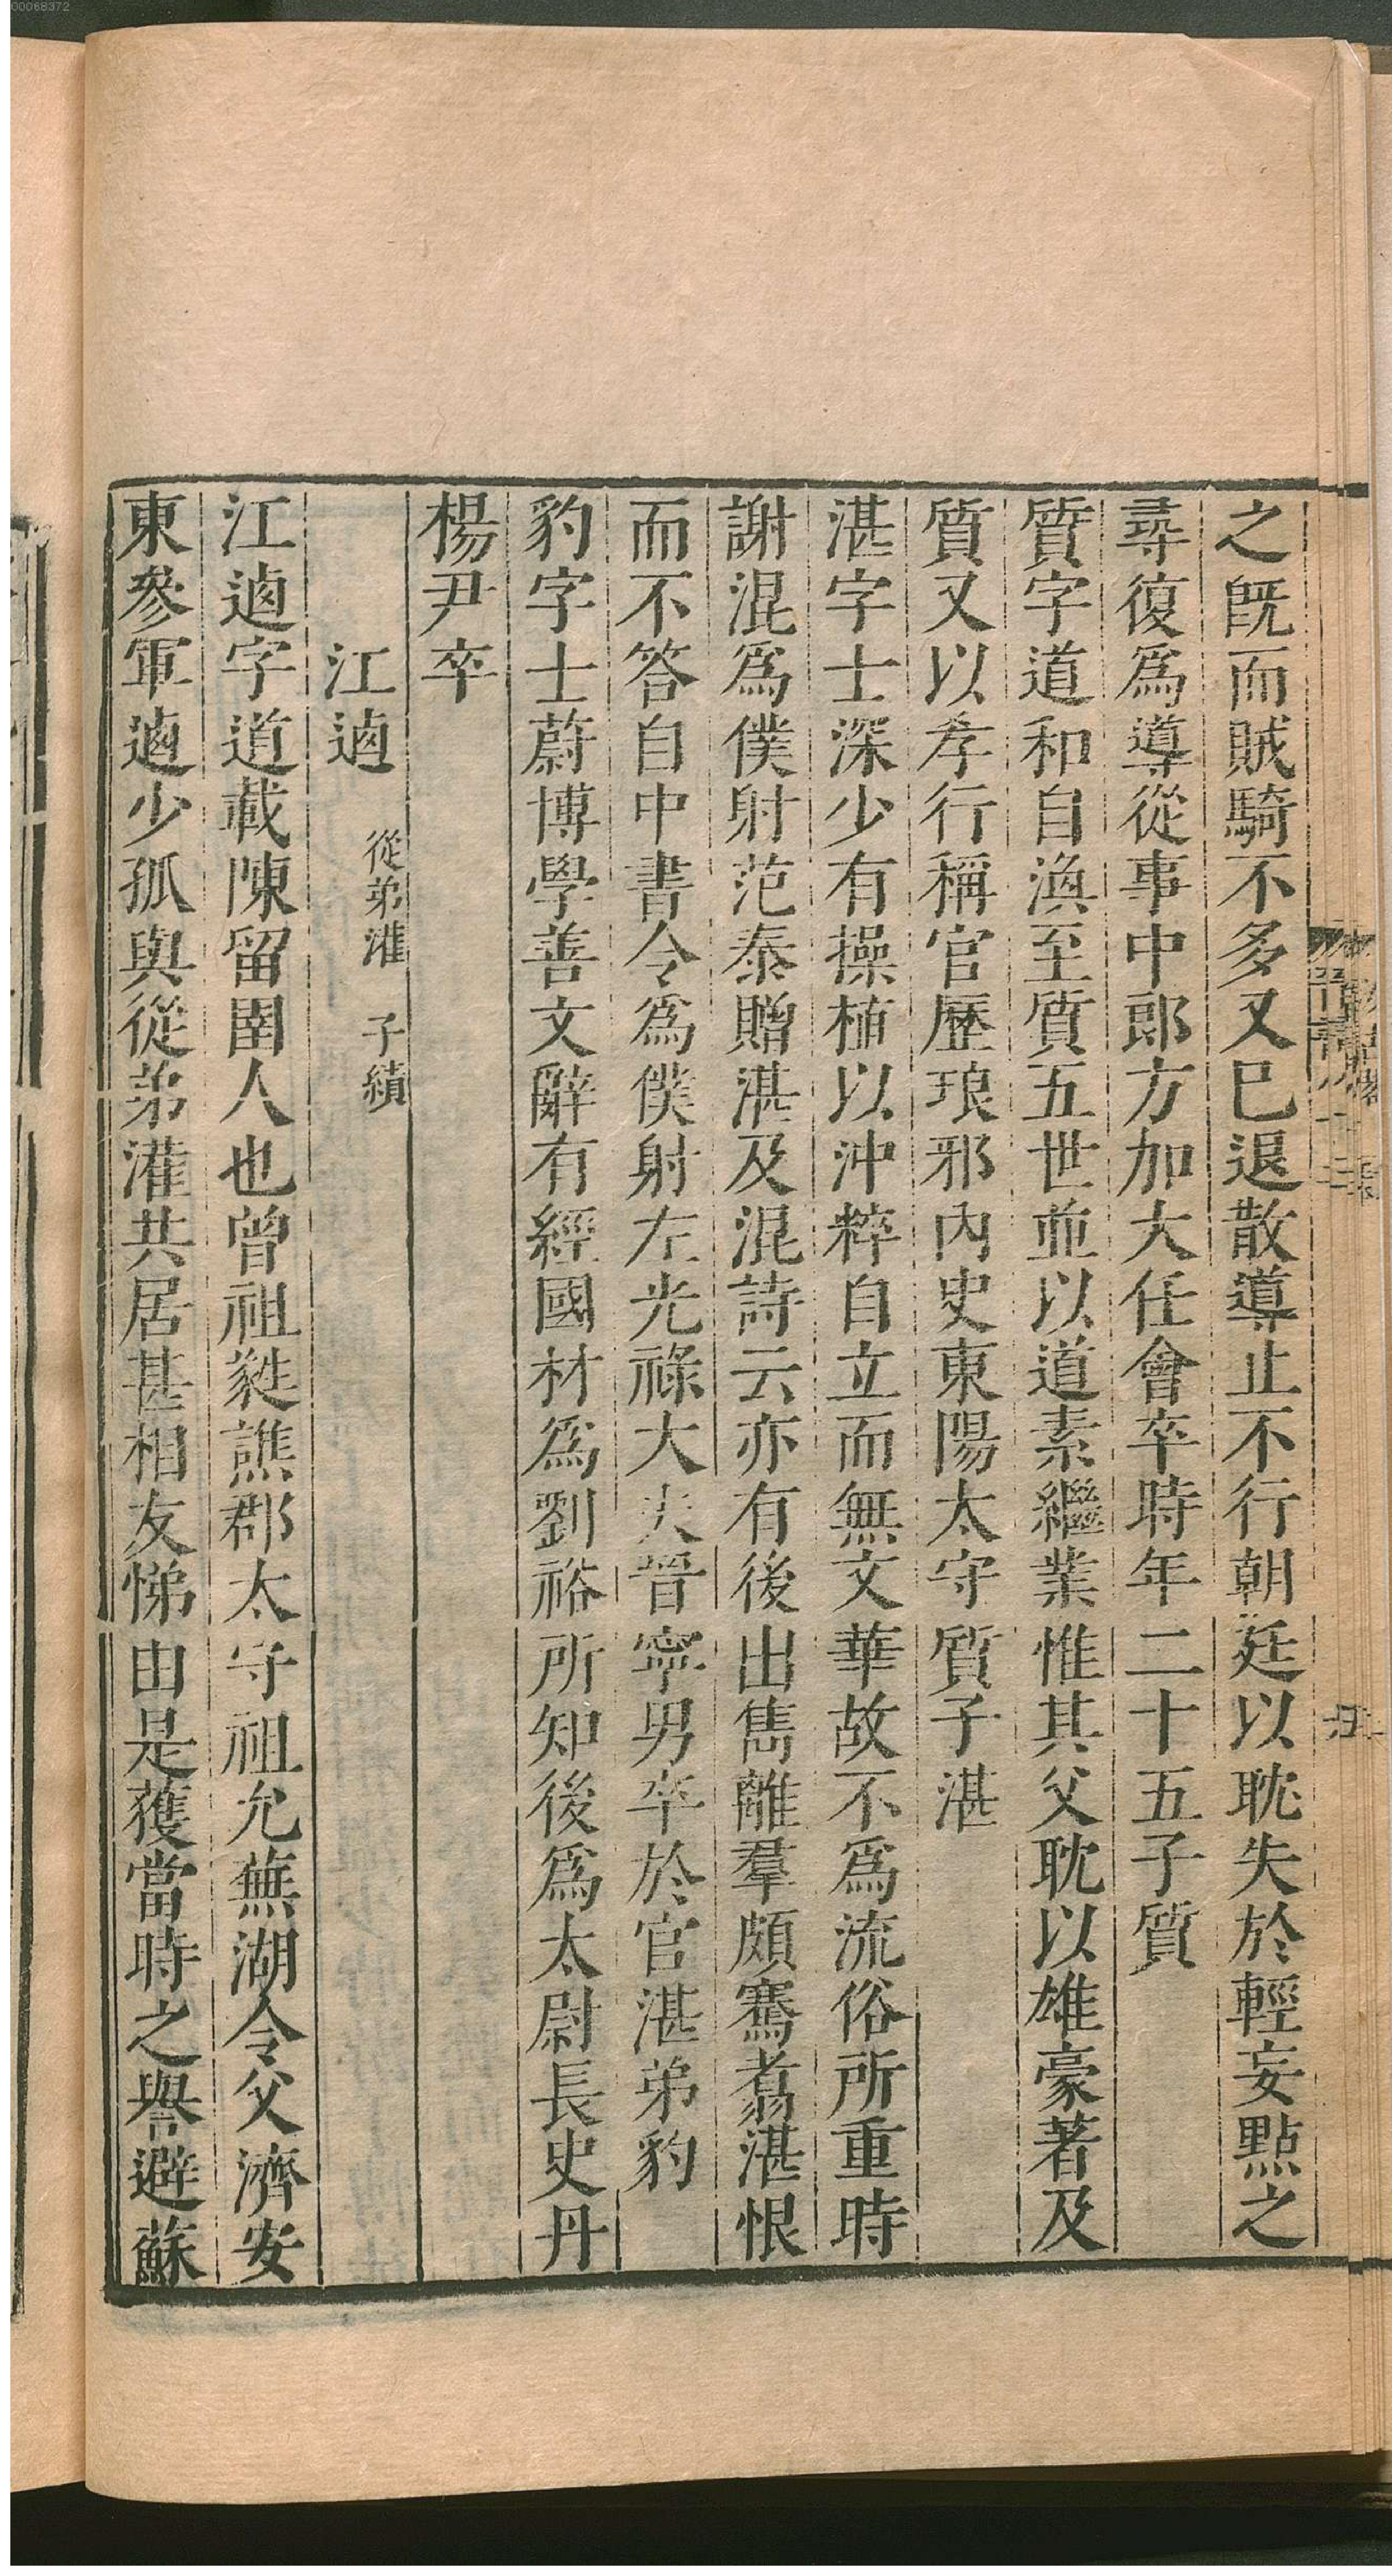 00068372
之既而賊騎不多又巳退散導止不行朝廷以耽失於輕妄黜之
尋復爲導從事中郎方加大任會卒時年二十五子質
質字道和自渙至質五世並以道素繼業惟其父耽以雄豪著及
質又以孝行稱官歷琅邪内史東陽太守質子湛
湛字士深少有操植以沖粹自立而無文華故不爲流俗所重時
謝混爲僕射范泰贈湛及混詩云亦有後出雋離羣頗騫翥湛恨
而不答自中書令爲僕射左光祿大夫晉寧男卒於官湛弟豹
豹字士蔚博學善文辭有經國材爲劉裕所知後爲太尉長史丹
楊尹卒
江逌 從弟灌 子績
江逌字道載陳留圉人也曾祖蕤譙郡太守祖允蕪湖令父濟安
東參軍逌少孤與從弟灌共居甚相友悌由是獲當時之譽避蘇